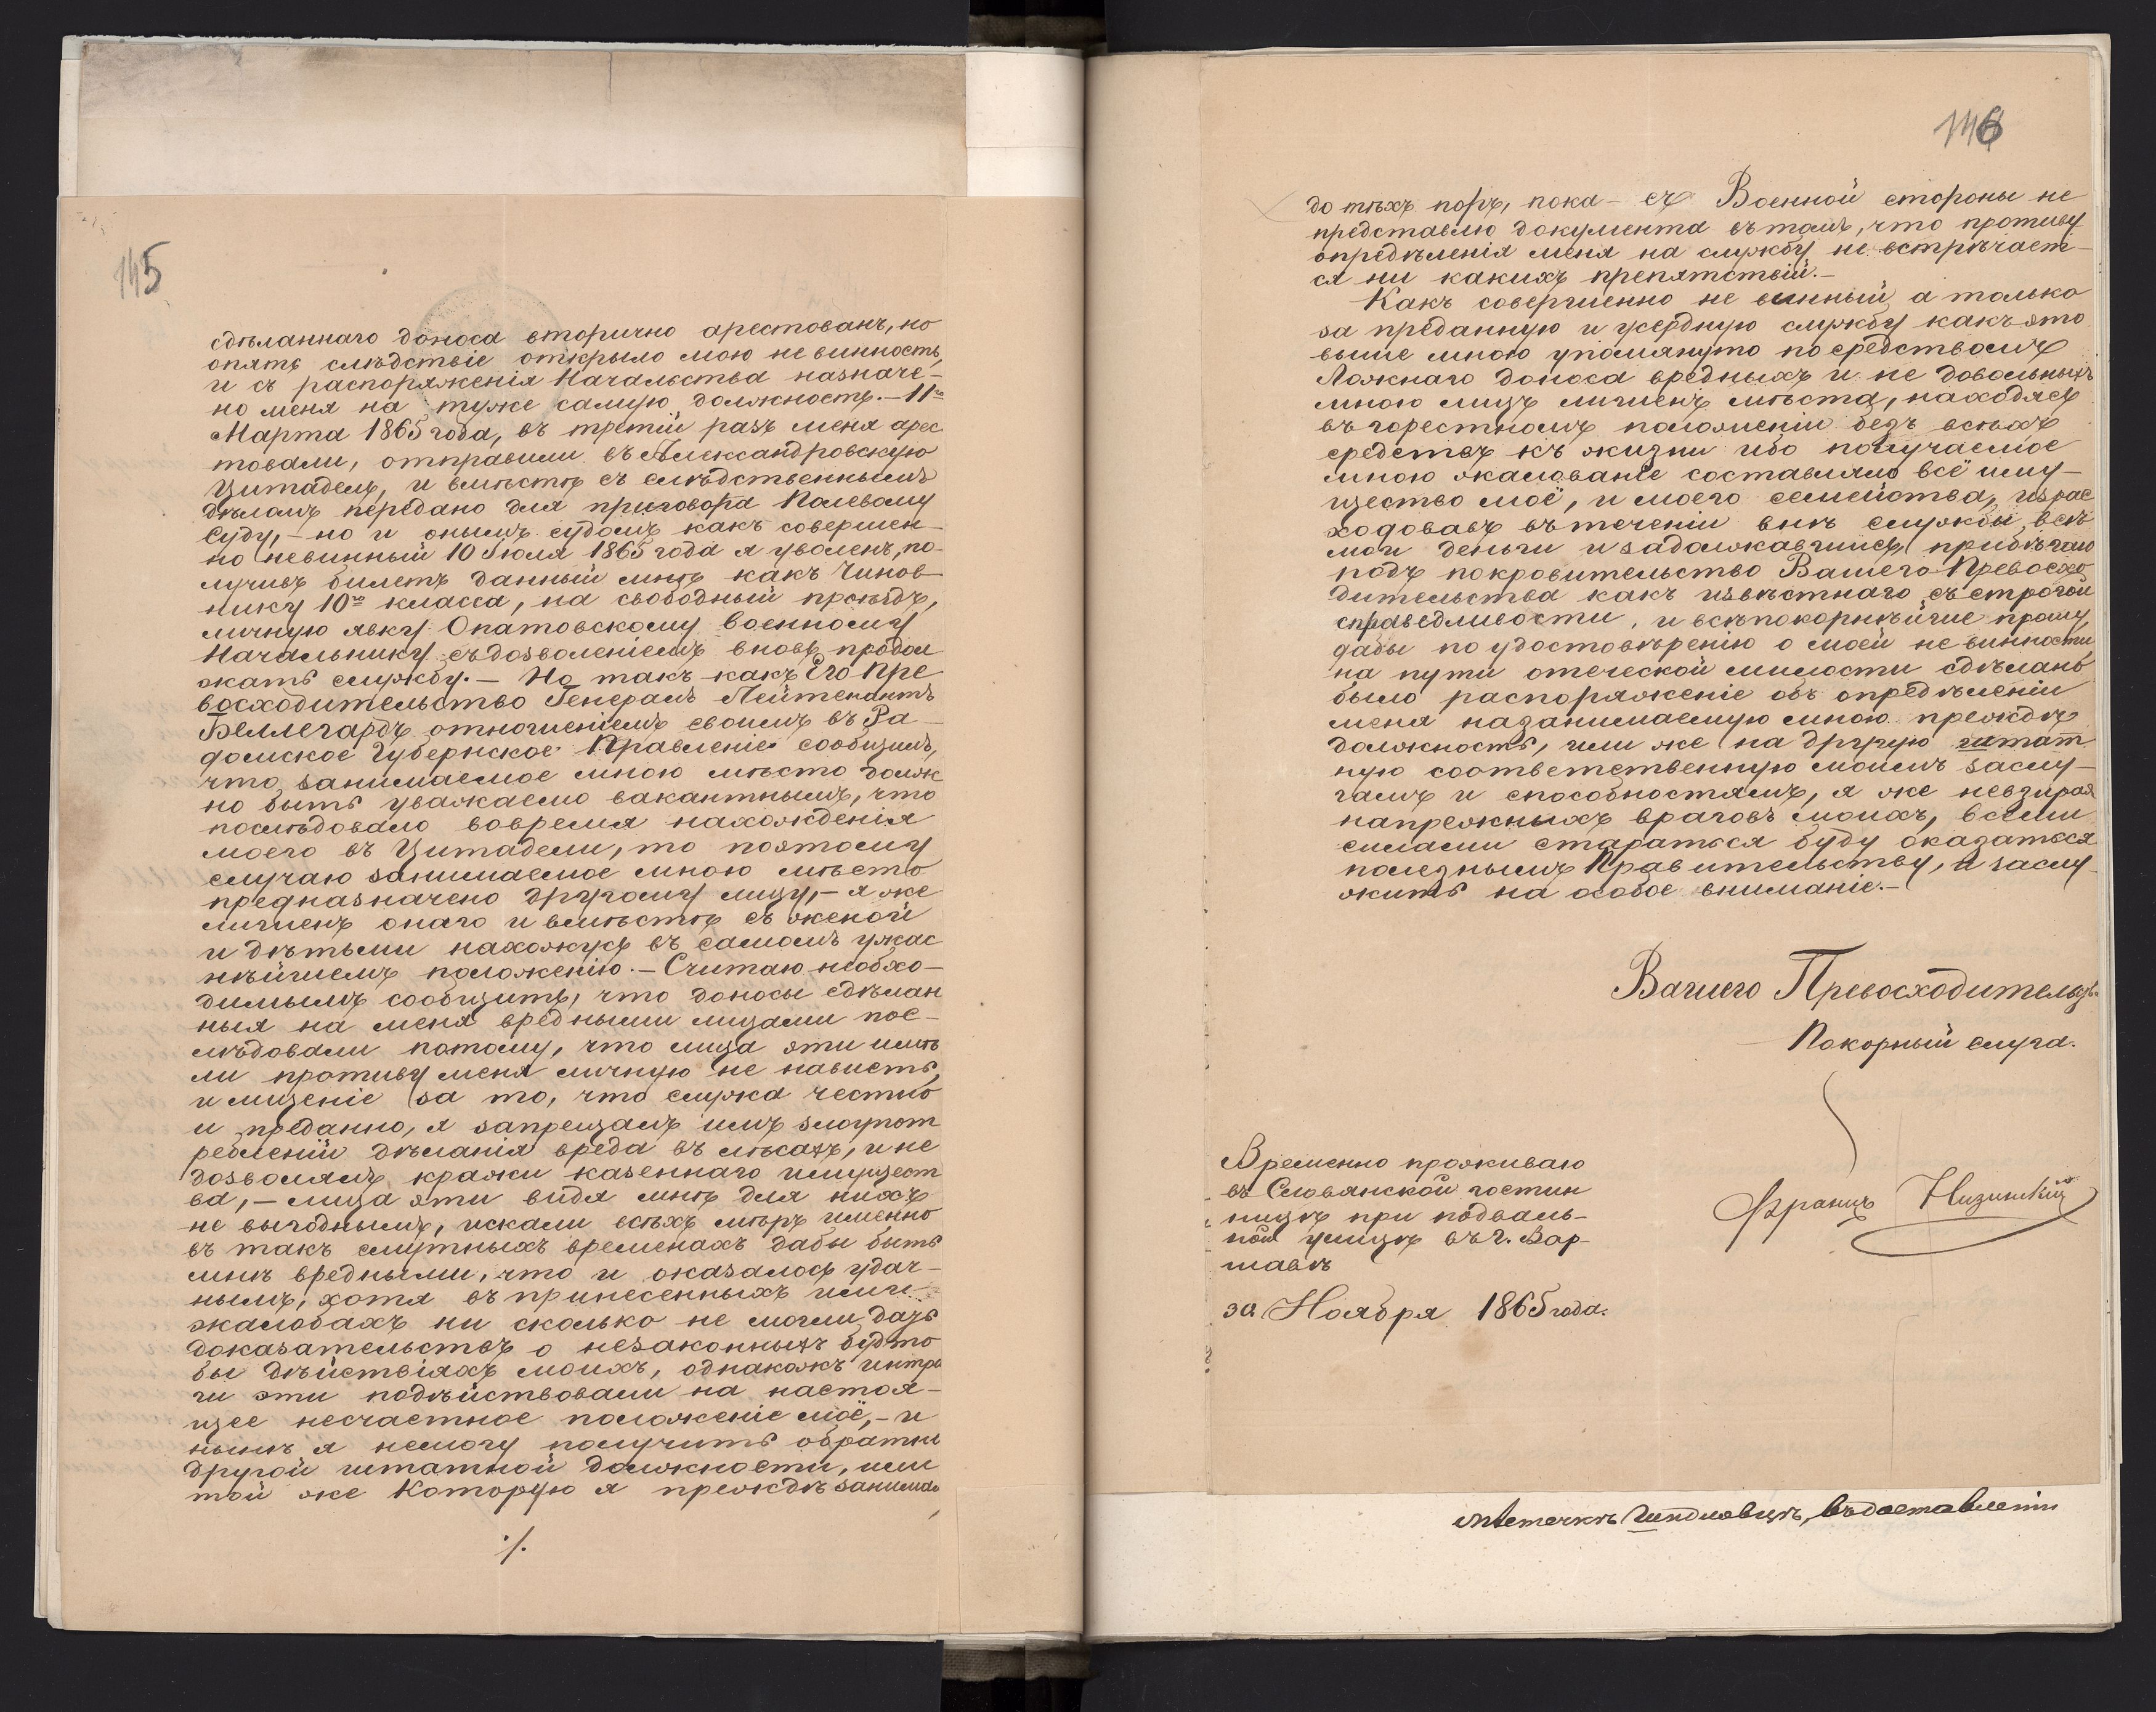 145
сдѣланнаго доноса вторично арестованъ, но
опять слѣдствіе открыло мою не винность,
и съ распоряженія Начальства назначе-
но меня на туже самую должность. — 11го
Марта 1865 года, въ третій разъ меня арес
товали, отправили въ Александровскую
Цитадель, и вмѣстѣ съ слѣдственнымъ
дѣломъ передано для приговора Полевому
Суду, — но и онымъ судомъ какъ совершен-
но невинный 10 Іюля 1865 года я уволенъ, по-
лучивъ билетъ данный мнѣ какъ Чинов-
нику 10го класса, на свободный проѣздъ,
личную явку Опатовскому Военному
Начальнику съ дозволеніемъ вновь продол
жать службу. — Но такъ какъ Его Пре
восходительство Генералъ Лейтенантъ
Беллегардъ отношеніемъ своимъ въ Ра-
домское Губернское Правленіе сообщилъ,
что занимаемое мною мѣсто долж
но быть уважаемо вакантнымъ, что
послѣдовало вовремя нахожденія
моего въ Цитадели, то поэтому
случаю занимаемое мною мѣсто
предназначено другому лицу, — я же
лишенъ онаго и вмѣстѣ съ женой
и дѣтьми нахожусь въ самомъ ужас
нѣйшемъ положенію. — Считаю необхо-
димымъ сообщить, что доносы сдѣлан
ныя на меня вредными лицами пос-
лѣдовали потому, что лица эти имѣ
ли противу меня личную не нависть,
и мщеніе за то, что служа честно
и преданно, я запрещалъ имъ злоупот
ребленій дѣланія вреда въ лѣсахъ, и не
дозволялъ кражи казеннаго имущест
ва, — лица эти видя мнѣ для нихъ
не выгоднымъ, искали всѣхъ мѣръ именно
въ такъ смутныхъ временахъ дабы быть
мнѣ вредными, что и оказалось удач-
нымъ, хотя въ принесенныхъ ими
жалобахъ ни сколько не могли дать
доказательствъ о незаконныхъ будто
бы дѣйствіяхъ моихъ, однакожъ интри
ги эти подѣйствовали на настоя-
щее несчастное положеніе моё, — и
нынѣ я немогу получить обратни
другой штатной должности, или
той же Которую я прежде занималъ
·/.
146
до тѣхъ поръ, пока — съ Военной стороны не
представлю документа въ томъ, что противу
опредѣленія меня на службу не встрѣчает-
ся ни какихъ препятствій. —
Какъ совершенно не винный а только
за преданную и усердную службу какъ это
выше мною упомянуто по средствомъ
Ложнаго доноса вредныхъ и не довольныхъ
мною лицъ лишенъ мѣста, находясь
въ горестномъ положеніи безъ всѣхъ
средствъ къ жизни ибо получаемое
мною жалованіе составляло всё иму-
щество моё, и моего семейства, израс
ходовавъ въ теченіи внѣ службы всѣ
мои деньги и задолжавшись прибѣгаю
подъ покровительство Вашего Превосхо
дительства какъ извѣстнаго съ строгой
справедливости, и всѣпокорнѣйше прошу,
дабы по удостовѣренію о моей не винности,
на пути отеческой милости сдѣлано
было распоряженіе объ опредѣленіи
меня на занимаемую мною прежде
должность, или же на другую штат
ную соотвѣтственную моимъ заслу-
гамъ и способностямъ, я же невзирая
на прежныхъ враговъ моихъ, всеми
силами стараться буду оказаться
полезнымъ Правительству, и заслу-
жить на особое вниманіе. —
Вашего Превосходительства
Покорный слуга.
Францъ Низинскій
Временно проживаю
въ Словянской гостин
ницѣ при подваль-
ной улицѣ въ г. Вар-
шавѣ
30 Ноября 1865 года.
мѣстечкѣ Шидловцѣ, въ доставленіи